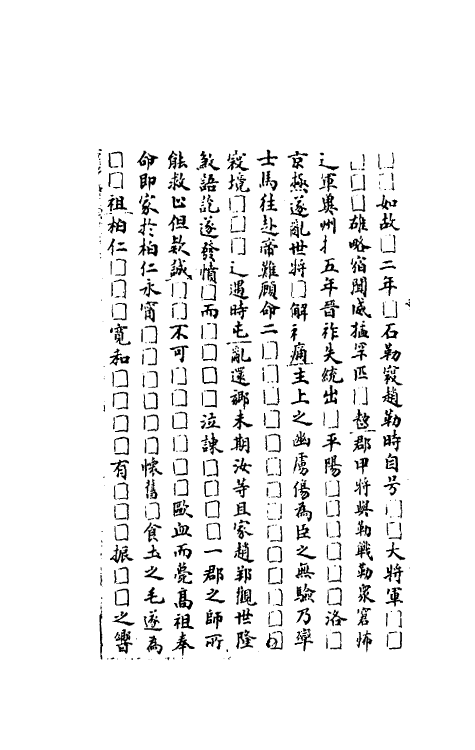 □□如故□二年□石勒寇趙勒時自号□□大將軍□□
□□□雄略宿聞威猛罕匹□□郡甲將與勒戰勒衆窘怖
辶軍奧州扌五年晉祚失統出□平陽□□□□□□洛□
京無遂亂世將□解礻痛主上之幽虜傷為臣之無驗乃率
士馬往赴帝難顧命二□□□□□□□□□□□□□□□
寇境□□□辶遇時屯亂還鄉未期汝等且家趙郡觀世隆
語訖遂發憤□而□□□□泣諫□□□□□一郡之師所
能救止但欵誠□□不可□□□□□□□歐血而薨高祖奉
命即家於柏仁永甯□□□□□□懷舊□食土之毛遂為
□□祖柏仁□□□□寬和□□□□□有□□□□振□□之響